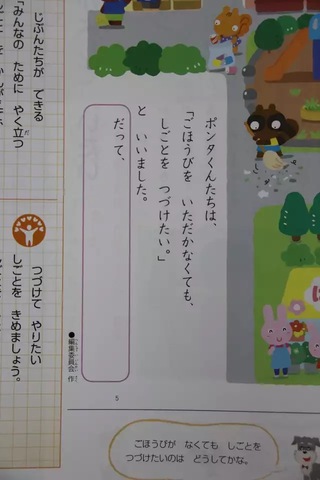 ポンタくんたちは、
「ごほうびを いただかなくても、
しごとを つづけたい。」
と いいました。
だって、
●編集委員会 作
5
ごほうびが なくても しごとを
つづけたいのは どうしてかな。
じぶんたちが できる
「みんなの ために やく立つ
つづけて やりたい
しごとを きめましょう。